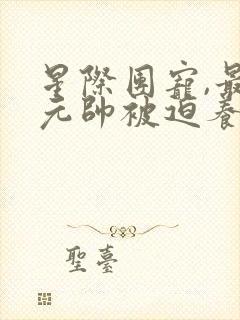 星際團寵,最
元帥被迫養
聖臺